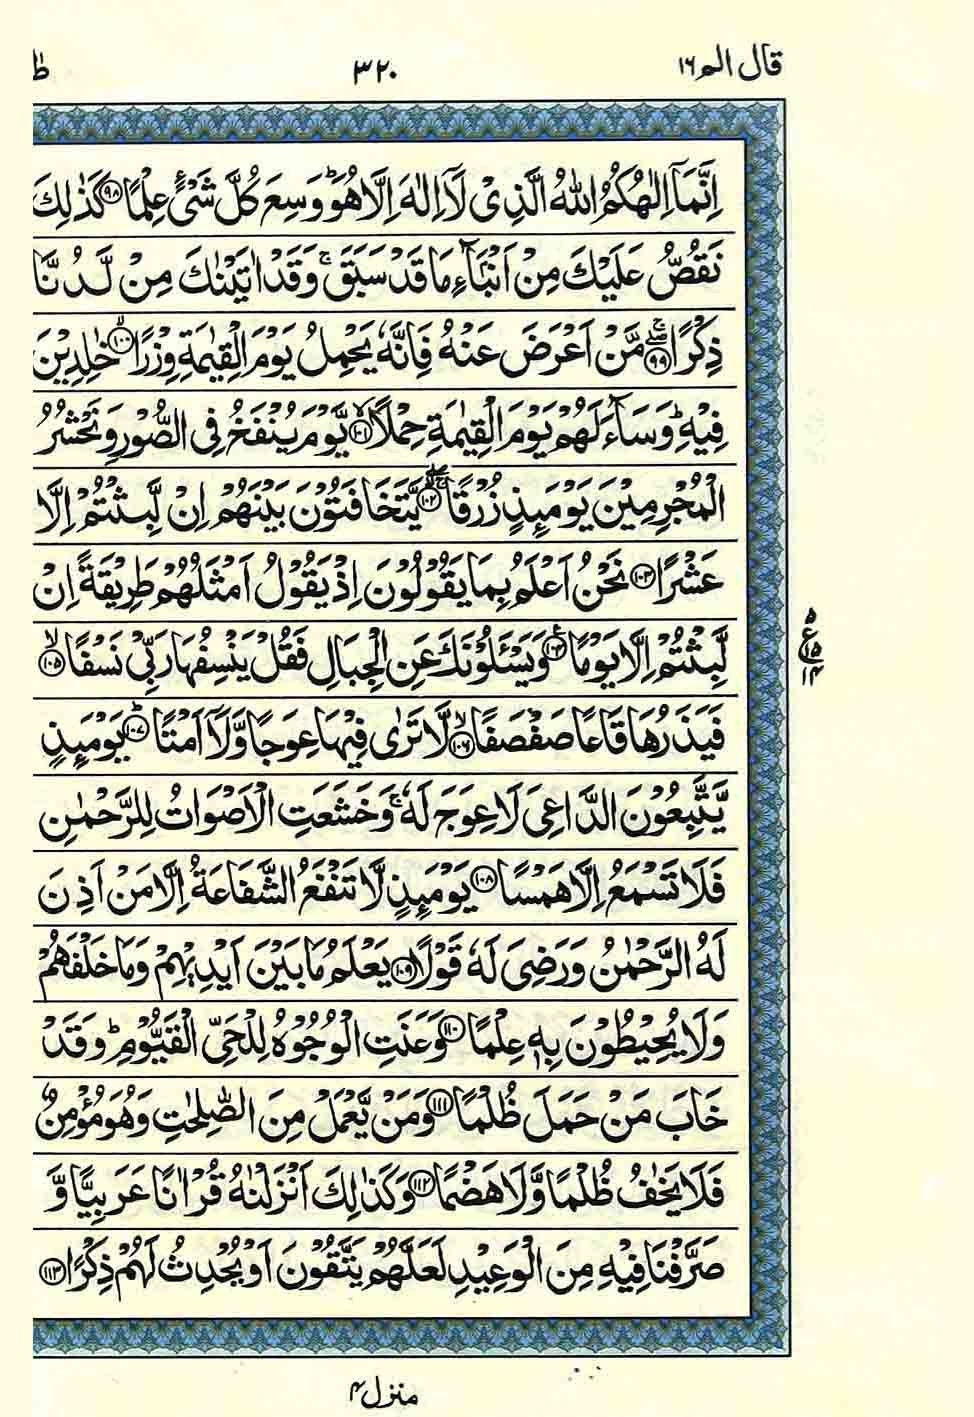 قال الم ١٦
٣٢٠
طٰ
اِنَّمَاۤ اِلٰهُكُمُ اللّٰهُ الَّذِىْ لَاۤ اِلٰهَ اِلَّا هُوَ ؕ وَسِعَ كُلَّ شَىْءٍ عِلْمًا ﴿٩٨﴾ كَذٰلِكَ
نَقُصُّ عَلَيْكَ مِنْ اَنْۢبَآءِ مَا قَدْ سَبَقَ ۚ وَقَدْ اٰتَيْنٰكَ مِنْ لَّدُنَّا
ذِكْرًا ۖۚ ﴿٩٩﴾ مَّنْ اَعْرَضَ عَنْهُ فَاِنَّهٗ يَحْمِلُ يَوْمَ الْقِيٰمَةِ وِزْرًا ۙ ﴿١٠٠﴾ خٰلِدِيْنَ
فِيْهِ ؕ وَسَآءَ لَهُمْ يَوْمَ الْقِيٰمَةِ حِمْلًا ۙ ﴿١٠١﴾ يَّوْمَ يُنْفَخُ فِى الصُّوْرِ وَنَحْشُرُ
الْمُجْرِمِيْنَ يَوْمَئِذٍ زُرْقًا ۖۚ ﴿١٠٢﴾ يَّتَخَافَتُوْنَ بَيْنَهُمْ اِنْ لَّبِثْتُمْ اِلَّا
عَشْرًا ﴿١٠٣﴾ نَحْنُ اَعْلَمُ بِمَا يَقُوْلُوْنَ اِذْ يَقُوْلُ اَمْثَلُهُمْ طَرِيْقَةً اِنْ
لَّبِثْتُمْ اِلَّا يَوْمًا ﴿١٠٤﴾ وَيَسْـَٔلُوْنَكَ عَنِ الْجِبَالِ فَقُلْ يَنْسِفُهَا رَبِّىْ نَسْفًا ۙ ﴿١٠٥﴾
٥
ع
١٥
١٤
فَيَذَرُهَا قَاعًا صَفْصَفًا ۙ ﴿١٠٦﴾ لَّا تَرٰى فِيْهَا عِوَجًا وَّلَاۤ اَمْتًا ؕ ﴿١٠٧﴾ يَوْمَئِذٍ
يَّتَّبِعُوْنَ الدَّاعِىَ لَا عِوَجَ لَهٗ ۚ وَخَشَعَتِ الْاَصْوَاتُ لِلرَّحْمٰنِ
فَلَا تَسْمَعُ اِلَّا هَمْسًا ﴿١٠٨﴾ يَوْمَئِذٍ لَّا تَنْفَعُ الشَّفَاعَةُ اِلَّا مَنْ اَذِنَ
لَهُ الرَّحْمٰنُ وَرَضِىَ لَهٗ قَوْلًا ﴿١٠٩﴾ يَعْلَمُ مَا بَيْنَ اَيْدِيْهِمْ وَمَا خَلْفَهُمْ
وَلَا يُحِيْطُوْنَ بِهٖ عِلْمًا ﴿١١٠﴾ وَعَنَتِ الْوُجُوْهُ لِلْحَىِّ الْقَيُّوْمِ ؕ وَقَدْ
خَابَ مَنْ حَمَلَ ظُلْمًا ﴿١١١﴾ وَمَنْ يَّعْمَلْ مِنَ الصّٰلِحٰتِ وَهُوَ مُؤْمِنٌ
فَلَا يَخٰفُ ظُلْمًا وَّلَا هَضْمًا ﴿١١٢﴾ وَكَذٰلِكَ اَنْزَلْنٰهُ قُرْاٰنًا عَرَبِيًّا وَّ
صَرَّفْنَا فِيْهِ مِنَ الْوَعِيْدِ لَعَلَّهُمْ يَتَّقُوْنَ اَوْ يُحْدِثُ لَهُمْ ذِكْرًا ﴿١١٣﴾
منزل ٤